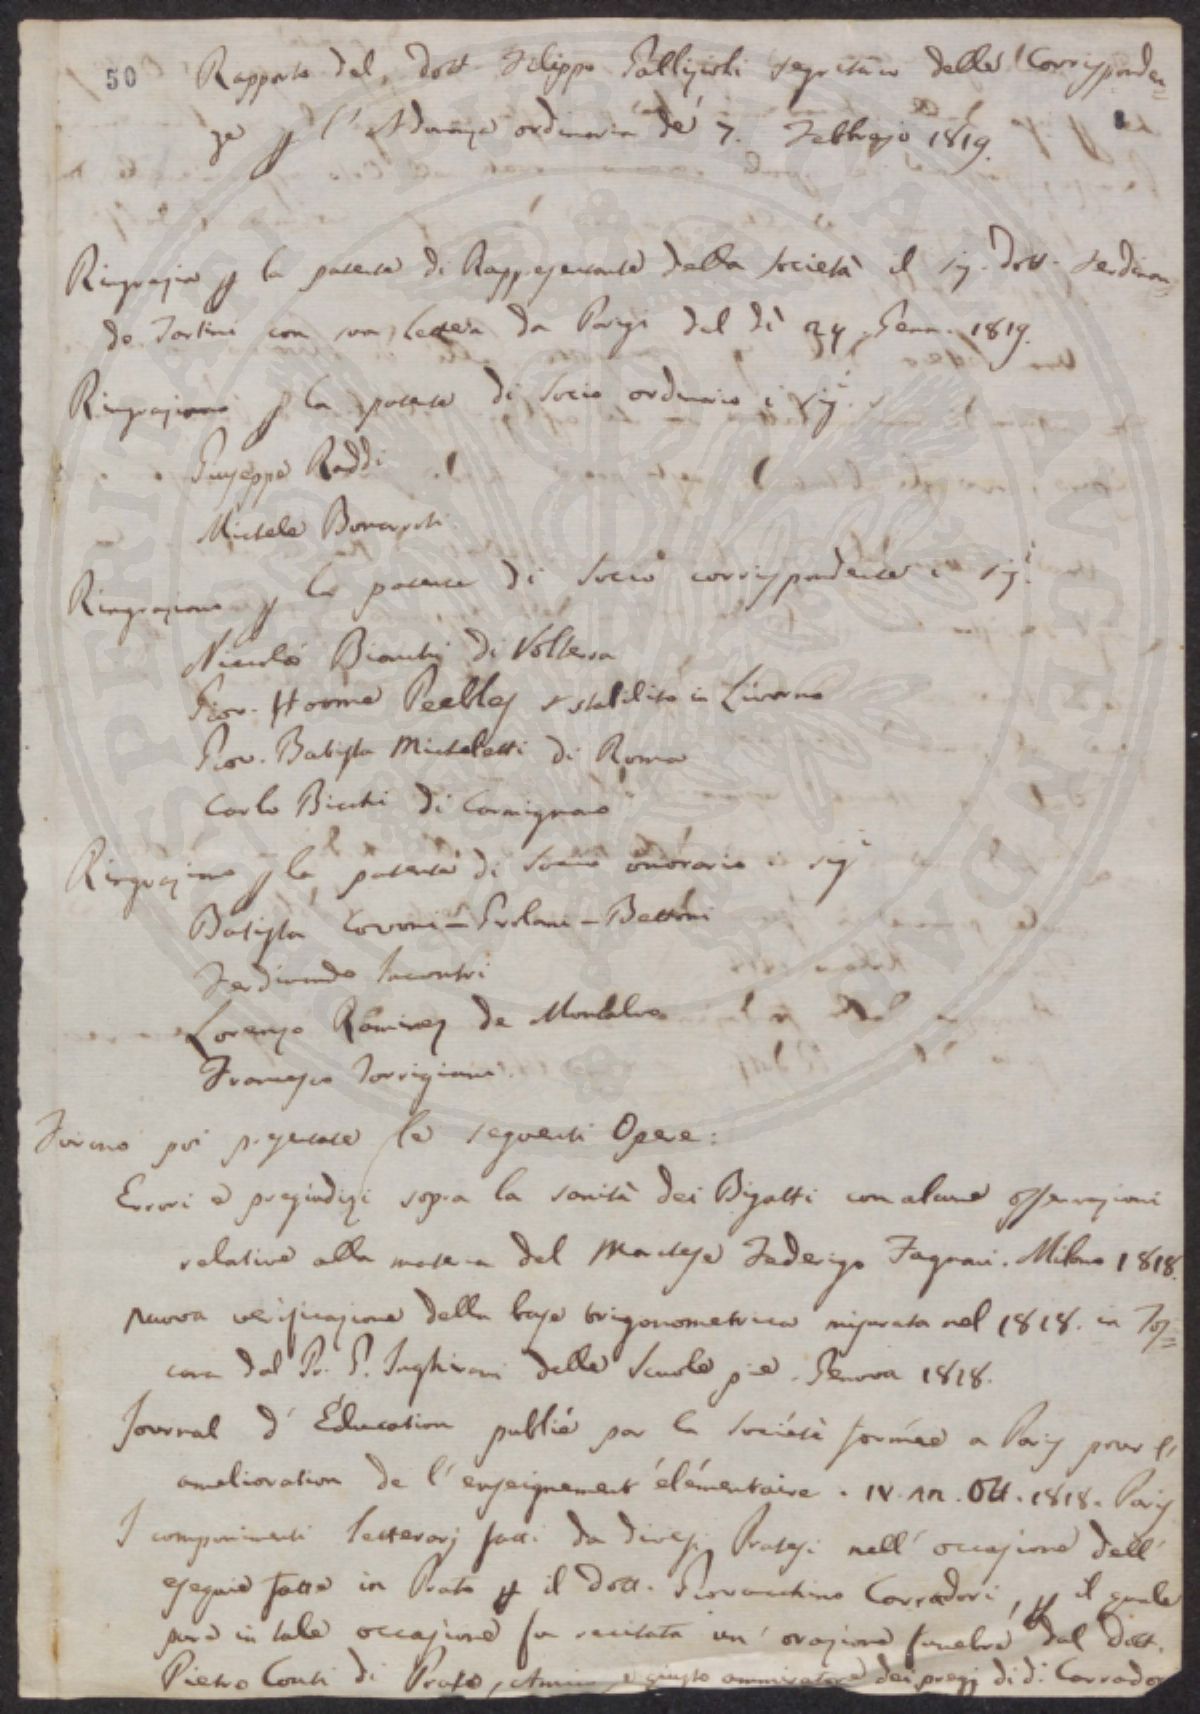 50 Rapporto del dott. Filippo Gallizioli Segretario delle Corrisponden=
ze p l'Adunanza ordinaria de' 7. Febbrajo 1819.
Ringrazia p la patente di Rappresentante della Società il Sig. Dott. Ferdinan=
do Tartini con sua lettera da Parigi del dì 24 Genn. 1819.
Ringraziano p la patente di Socio ordinario i Sigi.
Giuseppe Raddi
Michele Bonarroti
Ringraziano p la patente di Socio corrispondente i Sigi.
Niccolò Bianchi di Volterra
Giov. Horme Peebles stabilito in Livorno
Giov. Batista Micheletti di Roma
Carlo Bicchi di Carmignano
Ringraziano p la patente di Socio onorario i Sigi
Batista Covoni-Girolami-Bettoni
Ferdinando Incontri
Lorenzo Ramirez de Montalvo
Francesco Torrigiani.
Furono poi presentate le seguenti Opere:
Errori e pregiudizi sopra la sanità dei Bigatti con alcune osservazioni
relative alla materia del Marchese Federigo Fagnani. Milano 1818.
Nuova verificazione della base trigonometrica misurata nel 1818. in Tos=
cana dal Pr. G. Inghirami delle Scuole pie. Genova 1818.
Journal d' Éducation publié par la Société formée a Paris pour l'
amelioration de l'enseignement élémentaire. IV. An. Ott. 1818. Paris
I componimenti letterarj fatti da diversi Pratesi nell' occasione dell'
esequie fatte in Prato p il dott. Giovacchino Carradori, p il quale
pure in tale occasione fu recitata un' orazione funebre dal Dott.
Pietro Conti di Prato, Amico, e giusto ammiratore dei pregj di d. Carrador
SPERITAS PUBLICA AUGENDA